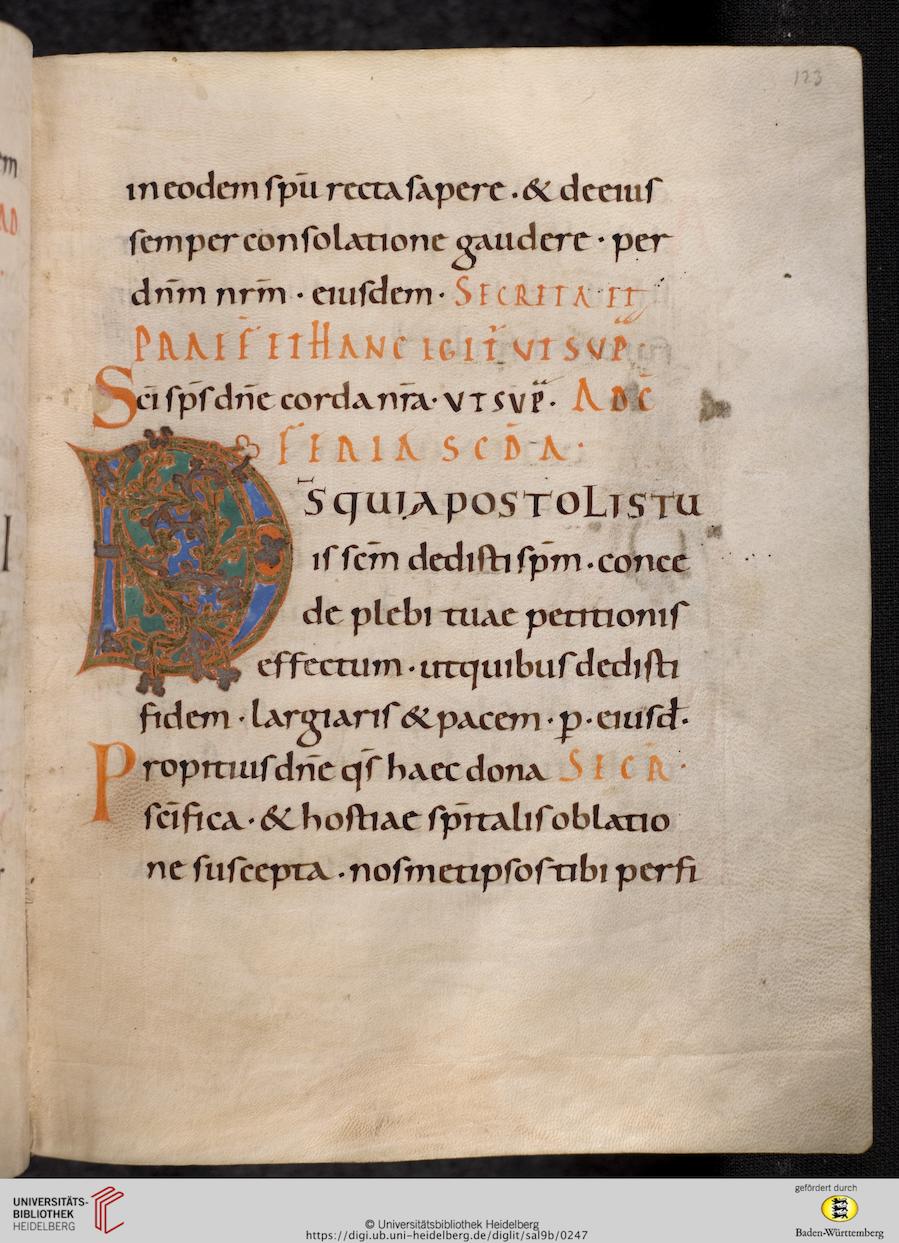 123
in eodem spū recta sapere · & de eius
semper consolatione gaudere · per
dnm̄ nrm̄ · eiusdem · SECRETA ET
PRAEF̄ ET HANC IGIT̄ VT SVP̄ ·
Scī sp̄s dn̄e corda nr̄a · VT SVP̄ · AD C̄
FERIA SCD̄A ·
DS̄ QUI APOSTOLIS TU
is scm̄ dedisti spm̄ · conce
de plebi tuae petitionis
effectum · ut quibus dedisti
fidem · largiaris & pacem · p̱ · eiusđ ·
Propitius dn̄e qs̄ haec dona SECR̄ ·
scīfica · & hostiae spīritalis oblatio
ne suscepta · nosmetipsos tibi perfi
UNIVERSITÄTS-
BIBLIOTHEK
HEIDELBERG
© Universitätsbibliothek Heidelberg
https://digi.ub.uni-heidelberg.de/diglit/sal9b/0247
gefördert durch
Baden-Württemberg